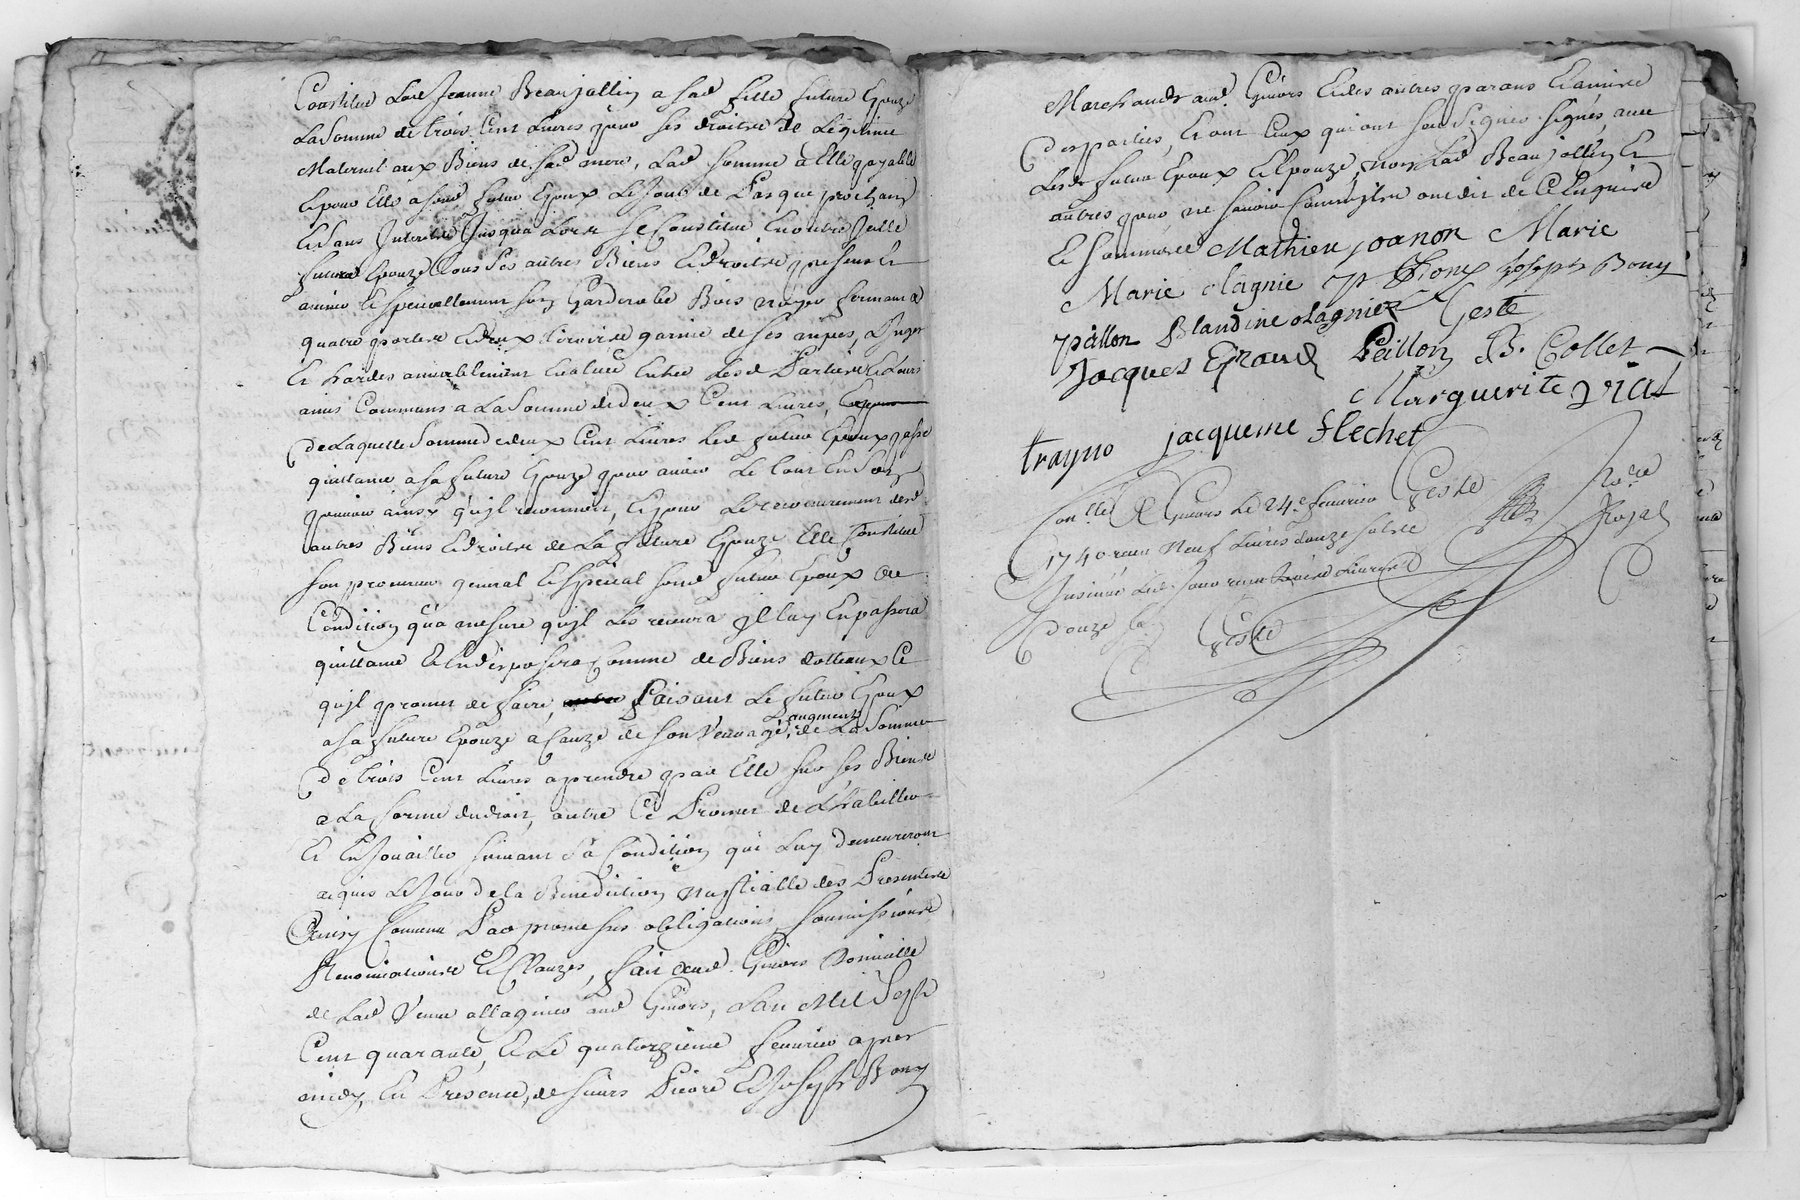 Constitue Lad Jeanne Beaujollin a sad fille future Epouze
La Somme de trois Cent Livres pour ses droits de Legitime
Maternel aux Biens de sad mere, Lad somme a Elle payable
Et pour Elle a sond futur Epoux Le Jour de Pasque prochain
Et sans Interest Jusqua Lors Se Constitue Enoutre Jcelle
future Epouze tous ses autres Biens Et droits presens Et
avenir Et speciallement son Garderobe Bois noyer fermant a
quatre portes Et deux tiroirs garnie de ses nipes, Linges
Et hardes amiablement Evalues Entre Lesd Parties Et Leurs
amis Communs a La Somme de deux Cent Livres,
De Laquelle Somme de deux Cent Livres Led futur Epoux passe
quittance a sa future Epouze pour avoir Le tout En son
pouvoir ainsy qu'jl reconnoit, Et pour Le recouvrement desd
autres Biens Et droits de La future Epouze Elle Constitue
son procureur general Et special sond futur Epoux a
Condition qu'a mesure qu'jl Les recevra jl luy En passera
quittance Et En disposera Comme de Biens dotteaux Ce
qu'jl promet de faire, faisant Le futur Epoux
a sa future Epouze a Cauze de son Veuvage, augment de La Somme
De trois Cent Livres a prendre par Elle sur ses Biens
a La forme du droit, outre Ce Promet de L'habiller
Et Enjouailler suivant sa Condition qui Luy demeureront
aquis Le Jour de la Benediction Nuptialle des Presentes
Car ainsy Comme Par promesses obligations, soumissions
Renonciations Et Clauzes, fait aud Givors Domicille
de Lad Veuve ollagnier aud Givors, L'an Mil Sept
Cent quarante, Et Le quatorzieme fevrier apres
midy, En Presence, de sieurs Pierre Et Joseph Bony
Marchands aud Givors Et des autres parans Et amis
Des parties, Et ont Ceux qui ont sceu Signer Signés, avec
Lesd futur Epoux Et Epouze, non Lad Beaujollin Et
autres pour ne Savoir Comme jls ont dit de Ce Enquis
Et Sommés Mathieu joanon Marie
Marie olagnie p Bony Joseph Bony
paillon Blandine olagnier Geste
Jacques Giraud Paillon B. Collet
Marguerite vial
trayno jacqueme flechet
Conllé A Givors Le 24e fevrier Geste
1740 receu Neuf Livres douze sols Nore Royal
Jnsinué Led Jour receu Livres
Douze s Geste